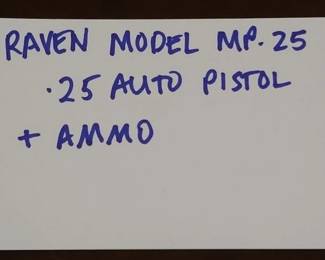 RAVEN MODEL MP.25
.25 AUTO PISTOL
+ AMMO